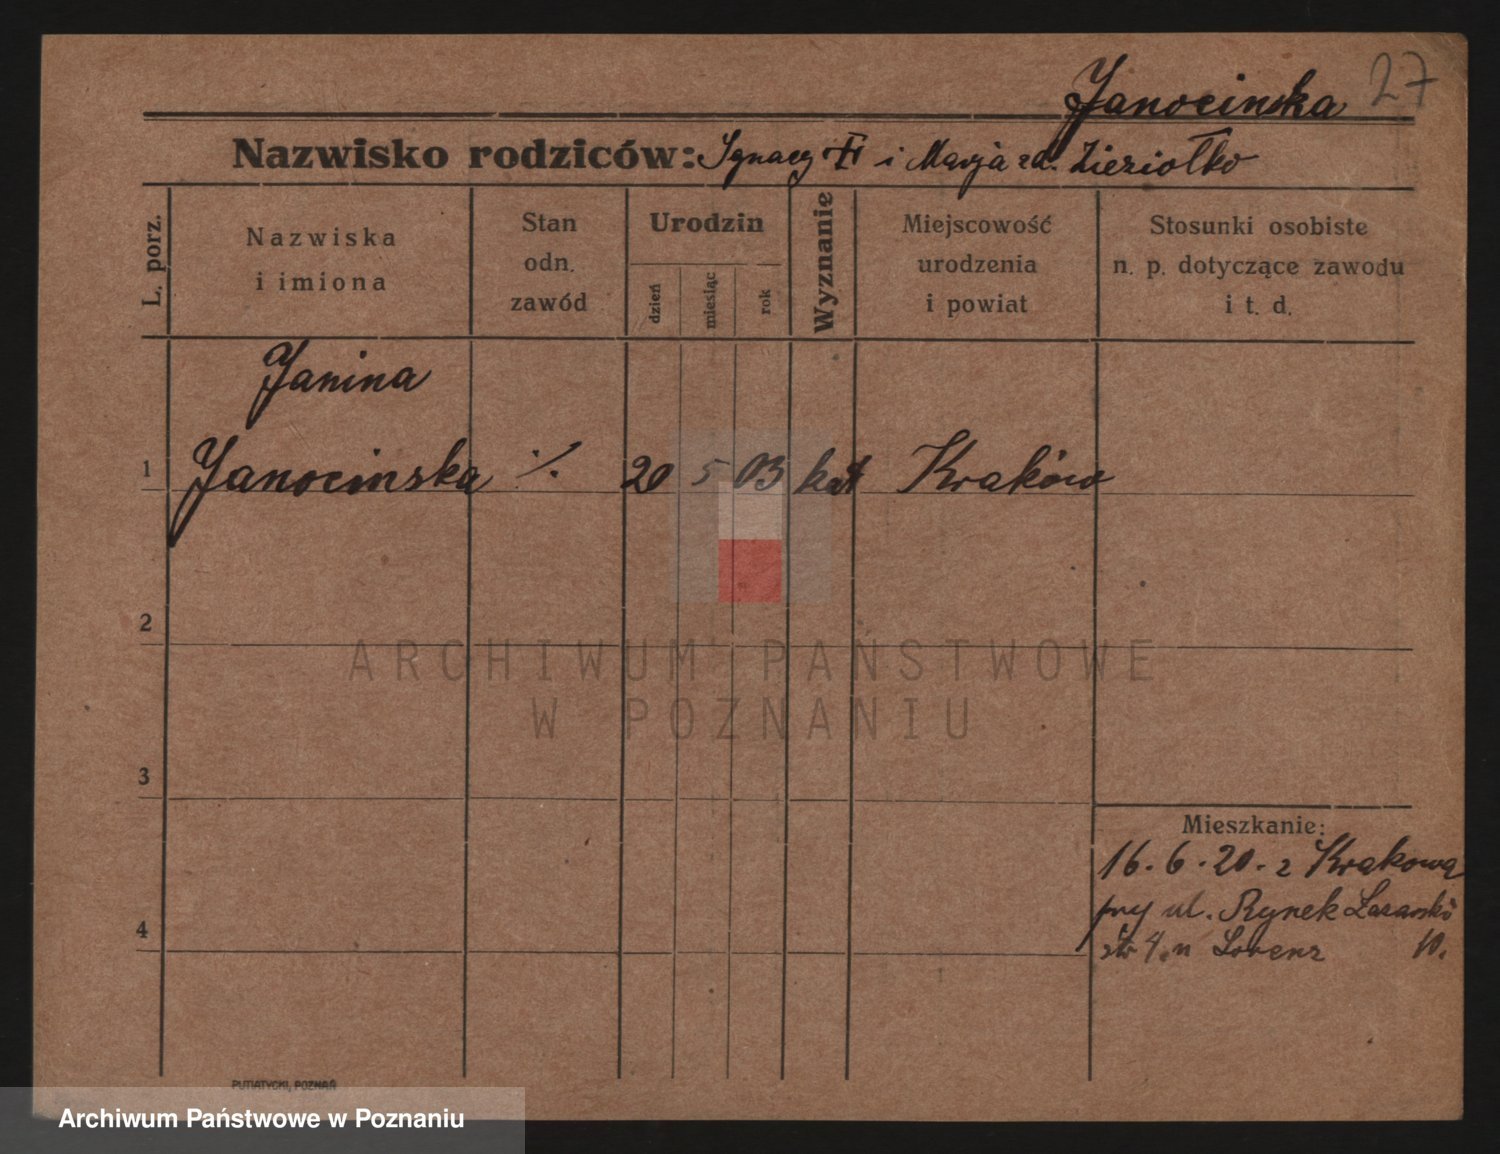 Janocinska 27
Nazwisko rodziców: Ignacy i Marja zd. Zieziołko
L. porz.
Nazwiska
i imiona
Stan
odn.
zawód
Urodzin
dzień
miesiąc
rok
Wyznanie
Miejscowość
urodzenia
i powiat
Stosunki osobiste
n. p. dotyczące zawodu
i t. d.
Janina
1 Janocinska ·/. 20 5 03 kat Kraków
2
ARCHIWUM PAŃSTWOWE
W POZNANIU
3
Mieszkanie:
16.6.20. z Krakowa
przy ul. Rynek Lazarski
4 Lorenz 10.
PUTIATYCKI, POZNAŃ
Archiwum Państwowe w Poznaniu